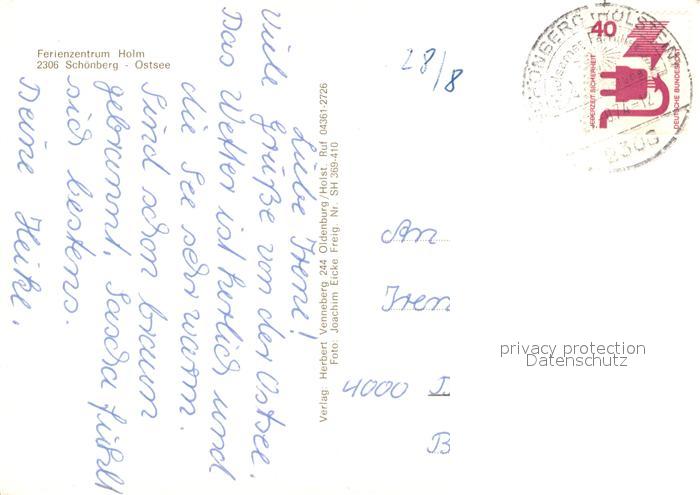 Ferienzentrum Holm
2306 Schönberg - Ostsee
Liebe Irene!
Viele Grüße von der Ostsee.
Das Wetter ist herlich und
die See sehr warm.
Sind schon braun
gebrannt. Sascha fühlt
sich bestens.
Deine Heike.
Verlag: Herbert Venneberg 244 Oldenburg/Holst. Ruf 04361-2726
Foto: Joachim Eicke Freig. Nr. SH 369-410
28/8
SCHÖNBERG (HOLSTEIN)
2306
40
JEDERZEIT SICHERHEIT
DEUTSCHE BUNDESPOST
An
Iren
4000
B
privacy protection
Datenschutz